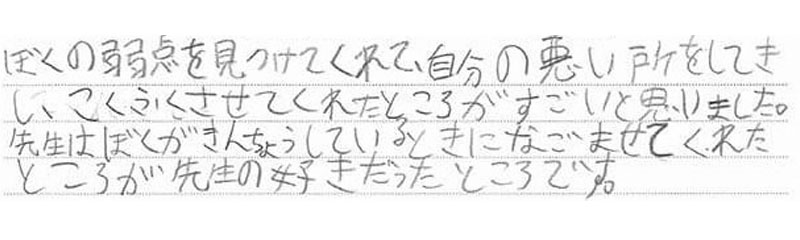 ぼくの弱点を見つけてくれて、自分の悪い所をしてき
し、こくふくさせてくれたところがすごいと思いました。
先生はぼくがきんちょうしているときになごませてくれた
ところが先生の好きだったところです。